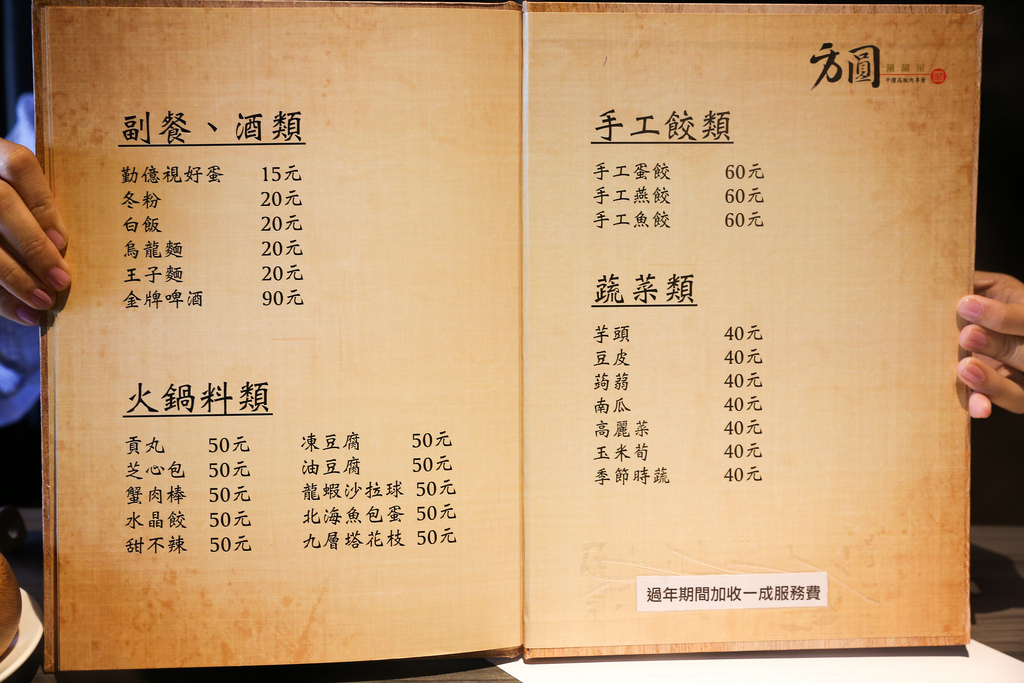 副餐、酒類
勤億視好蛋 15元
冬粉 20元
白飯 20元
烏龍麵 20元
王子麵 20元
金牌啤酒 90元
火鍋料類
貢丸 50元
芝心包 50元
蟹肉棒 50元
水晶餃 50元
甜不辣 50元
凍豆腐 50元
油豆腐 50元
龍蝦沙拉球 50元
北海魚包蛋 50元
九層塔花枝 50元
方圓
涮涮屋
手工餃類
手工蛋餃 60元
手工燕餃 60元
手工魚餃 60元
蔬菜類
芋頭 40元
豆皮 40元
蒟蒻 40元
南瓜 40元
高麗菜 40元
玉米筍 40元
季節時蔬 40元
過年期間加收一成服務費